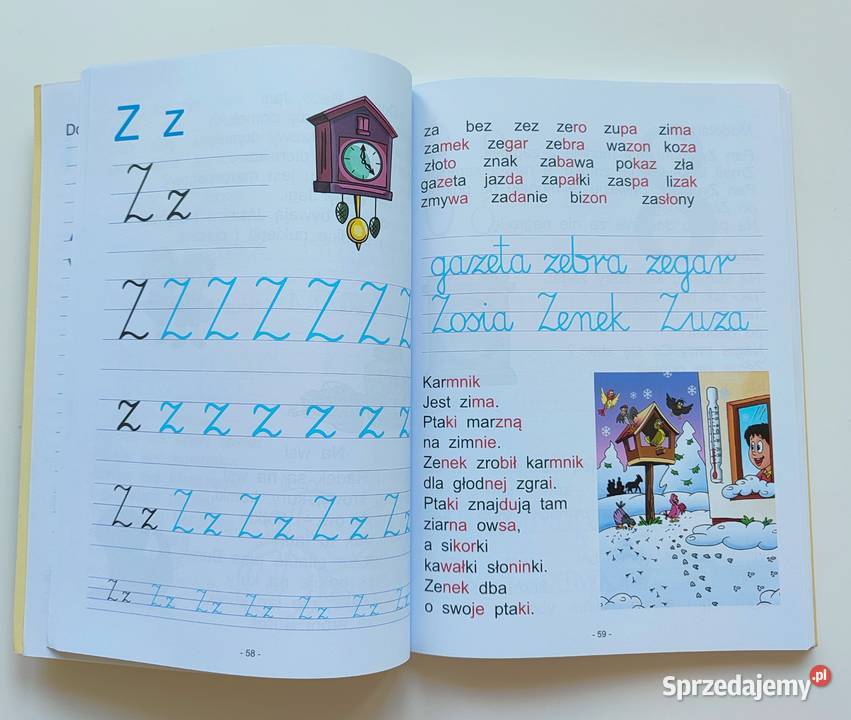 Do
Z z
Z z
Z Z Z Z Z Z Z
z z z z z z z
Z z Z z Z z Z z Z z
Z z Z z Z z Z z Z z Z z Z
- 58 -
za bez zez zero zupa zima
zamek zegar zebra wazon koza
złoto znak zabawa pokaz zła
gazeta jazda zapałki zaspa lizak
zmywa zadanie bizon zasłony
gazeta zebra zegar
Zosia Zenek Zuza
Karmnik
Jest zima.
Ptaki marzną
na zimnie.
Zenek zrobił karmnik
dla głodnej zgrai.
Ptaki znajdują tam
ziarna owsa,
a sikorki
kawałki słoninki.
Zenek dba
o swoje ptaki.
- 59 -
Sprzedajemy.pl